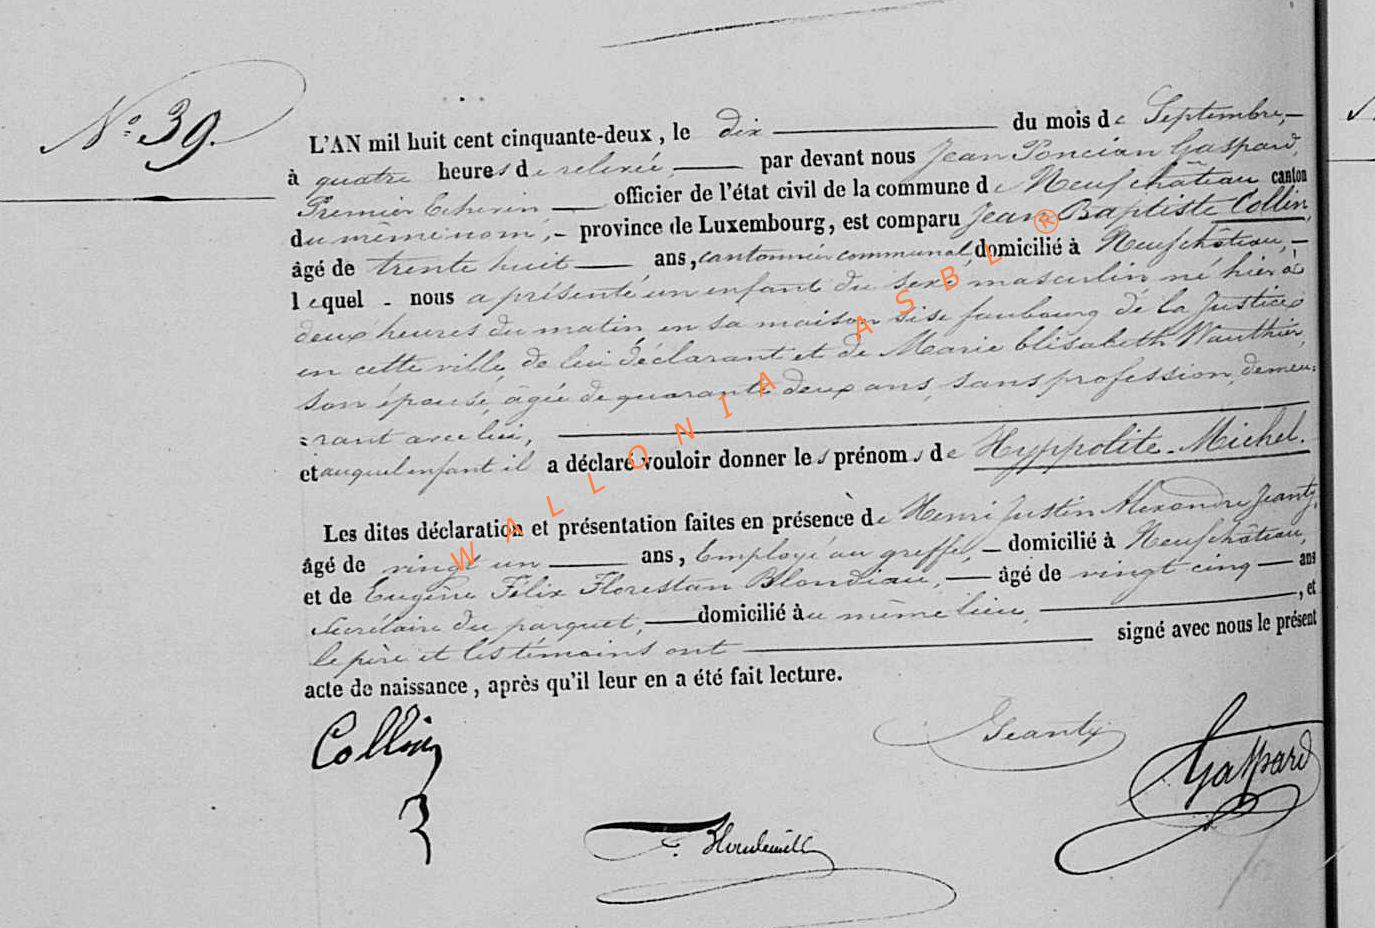 N° 39.
L'AN mil huit cent cinquante-deux, le dix du mois de Septembre,
à quatre heures de relevée, par devant nous Jean Poncian Gaspard,
Premier Echevin, officier de l'état civil de la commune de Neufchâteau canton
du même nom, province de Luxembourg, est comparu Jean Baptiste Collin,
âgé de trente huit ans, cantonnier communal, domicilié à Neufchâteau,
lequel nous a présenté un enfant du sexe masculin né hier à
deux heures du matin, en sa maison sise faubourg de la Justice
en cette ville, de lui déclarant et de Marie Elisabeth Wauthier,
son épouse, âgée de quarante deux ans, sans profession, demeu=
=rant avec lui,
et auquel enfant il a déclaré vouloir donner les prénoms de Hyppolite-Michel.
Les dites déclaration et présentation faites en présence de Henri Justin Alexandre Jeanty,
âgé de vingt un ans, Employé au greffe, domicilié à Neufchâteau,
et de Eugène Félix Florestan Blondiau, âgé de vingt cinq ans
Secrétaire du parquet, domicilié au même lieu, et
le père et les témoins ont signé avec nous le présent
acte de naissance, après qu'il leur en a été fait lecture.
Collin
Jeanty
Gaspard
WALLONIA ASBL ®